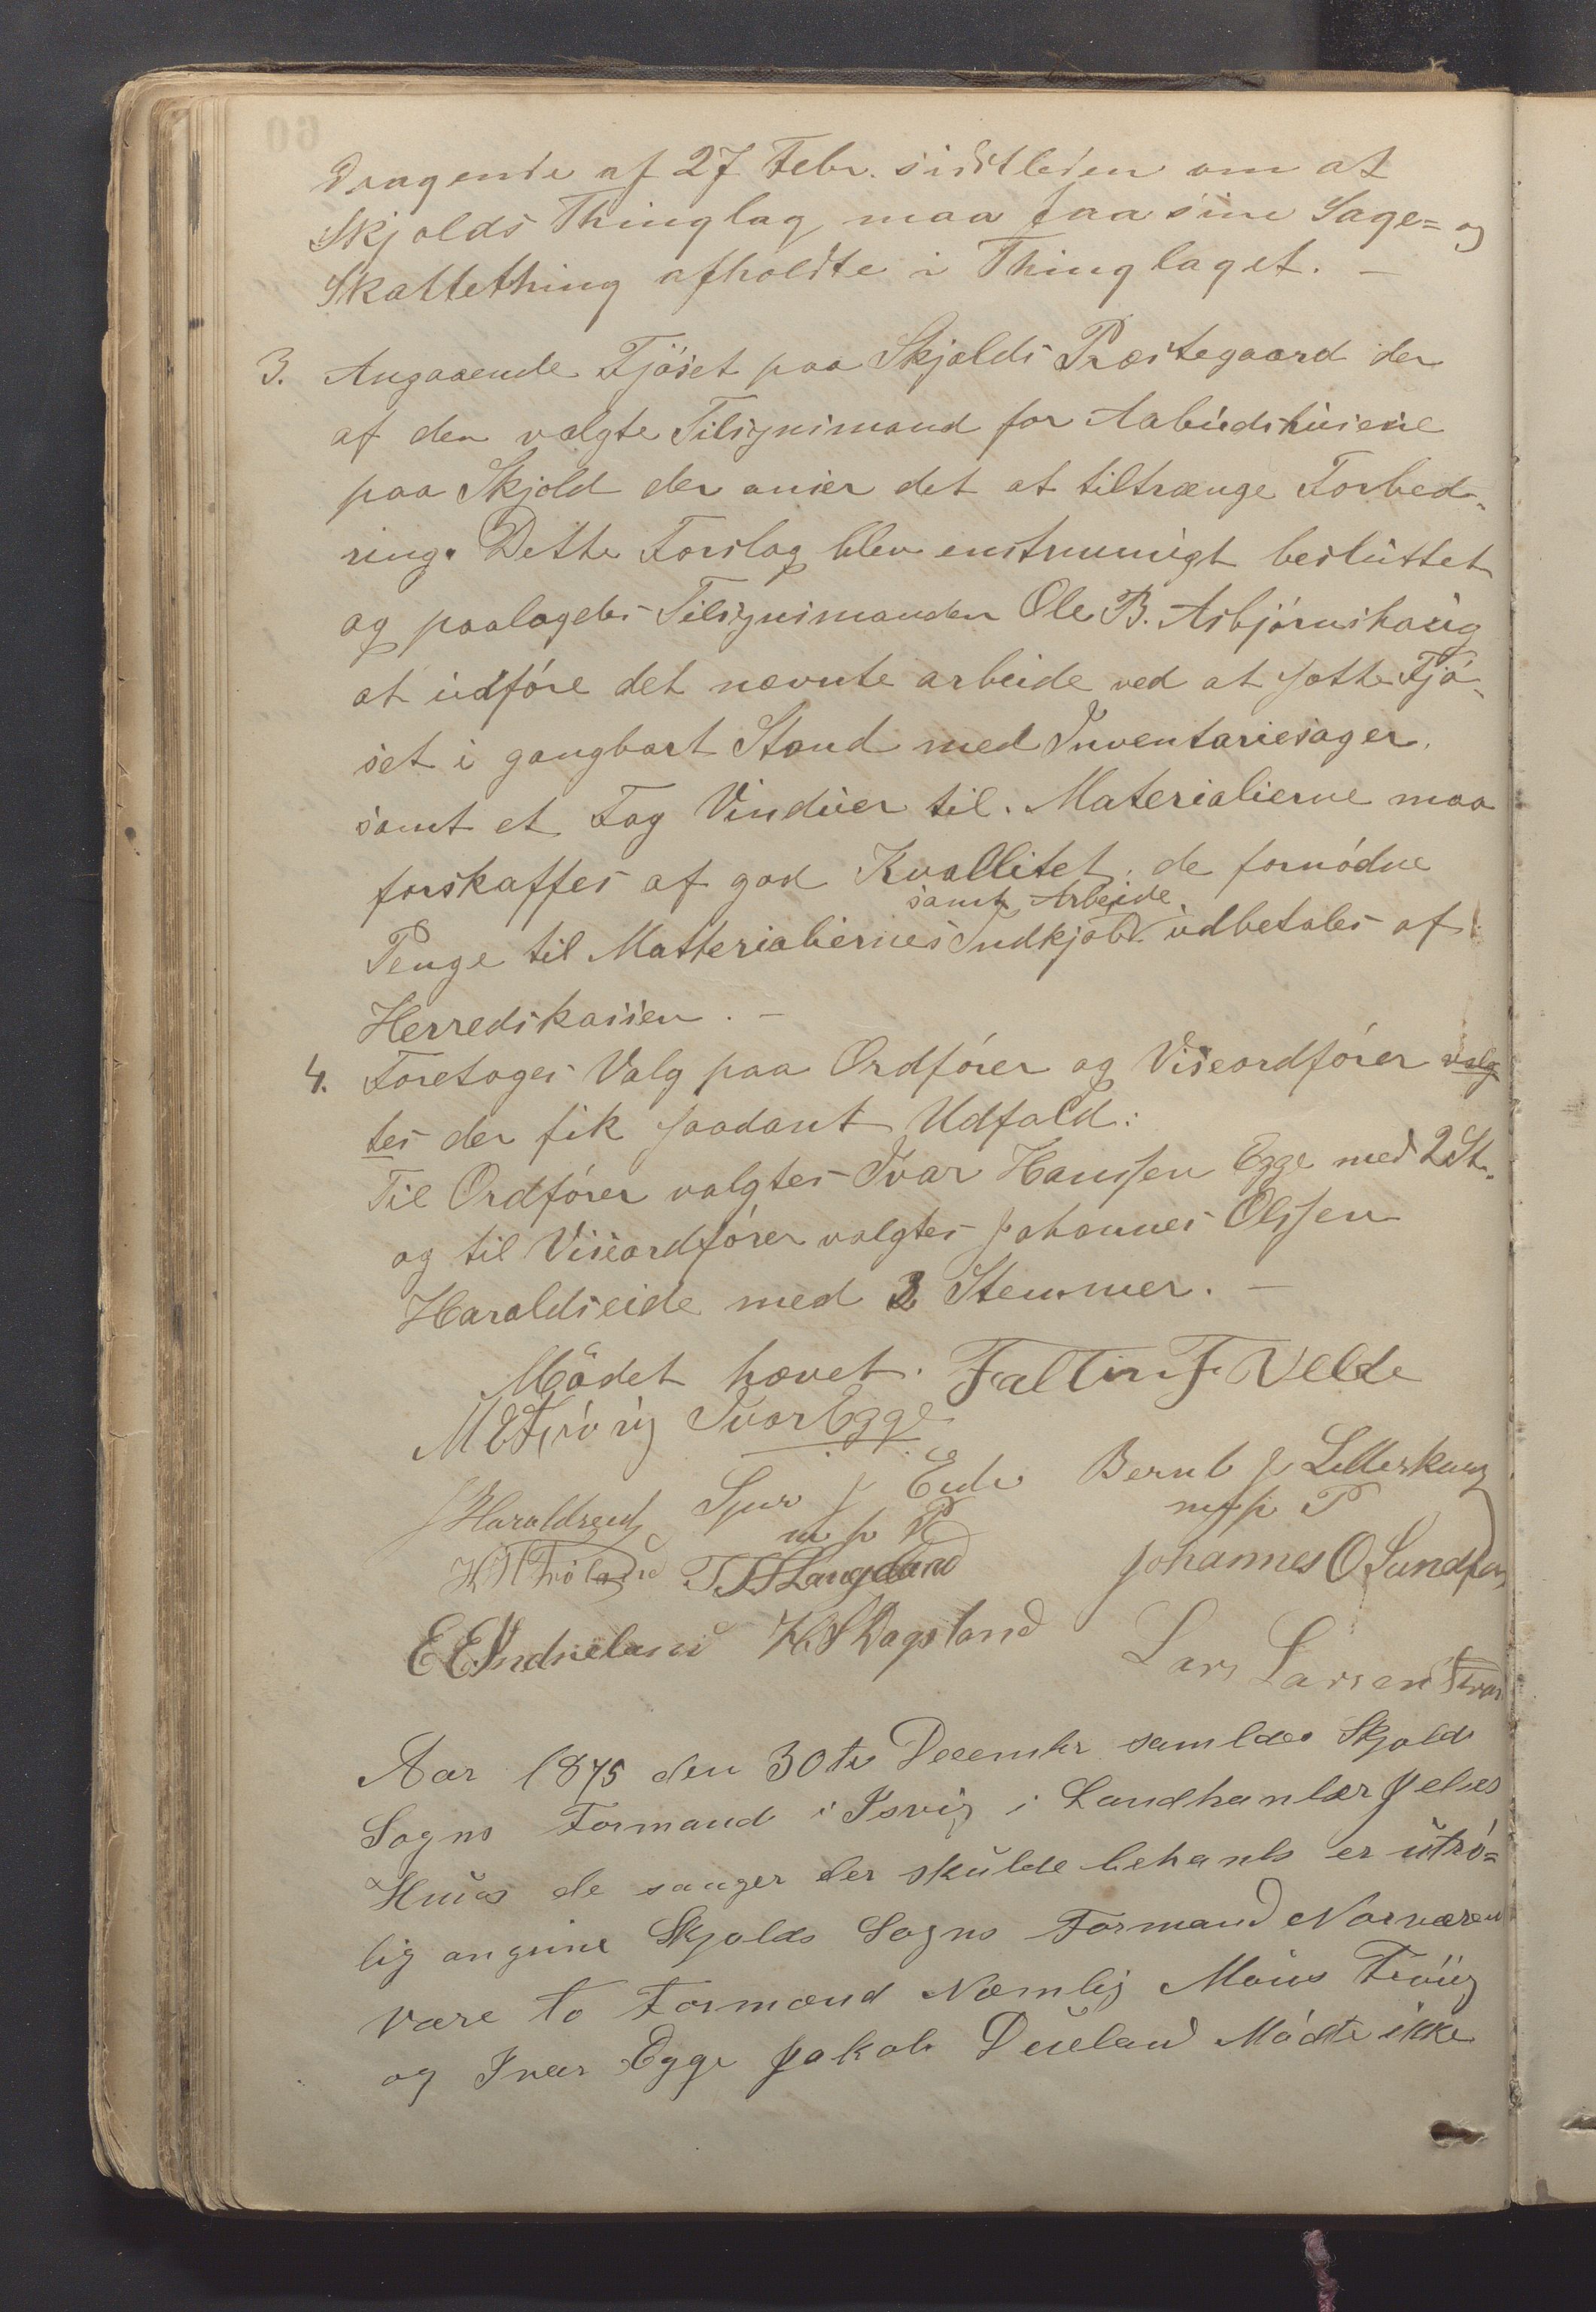 dragende af 27 Febr. sidstleden om at
Skjolds Thinglag maa faa sine Sage= og
Skattething afholdte i Thinglaget. —
3. Angaaende Fjöset paa Skjolds Præstegaard der
af den valgte Tilsynsmand for Aabudshusene
paa Skjold der anser det at tiltrænge Forbed-
ring. Dette Forslag blev enstemmigt besluttet
og paalagdes Tilsynsmanden Ole B. Asbjörnshaug
at udföre det nævnte arbeide ved at sætte Fjö-
set i gangbart Stand med Inventariesager,
samt et Fag Vinduer til. Materialierne maa
forskaffes af god Kvallitet, de fornödne
samt Arbeide
Penge til Matterialiernes Indkjöb udbetales af
Herredskassen. —
4. Foretoges Valg paa Ordförer og Viseordförer valg
tes der fik saadant Udfald:
Til Ordförer valgtes Ivar Hanssen Egge med 2 St.
og til Viseordförer valgtes Johannes Olssen
Haraldseide med 2 Stemmer. —
Mödet hævet. Faltin F Velde
M E Frövig Ivar Egge
J Haraldseid Sjur J Eide Bernt J Lilleskaug
m p P m p P
T T Langeland Johannes O Sundfør
E E Indrieland K S Dagsland
Lars Larsen
Aar 1875 den 30te Decembr samldes Skjolds
Sogns Formand i Isvig i Landhanler
Huus de sanger der skulde behanls er utrö=
lig angine Skjolds Sogns Formand Norværen
vare to Formænd Næmlig Måns Fröiig
og Ivar Egge Jakob Dueland Mödte ikke